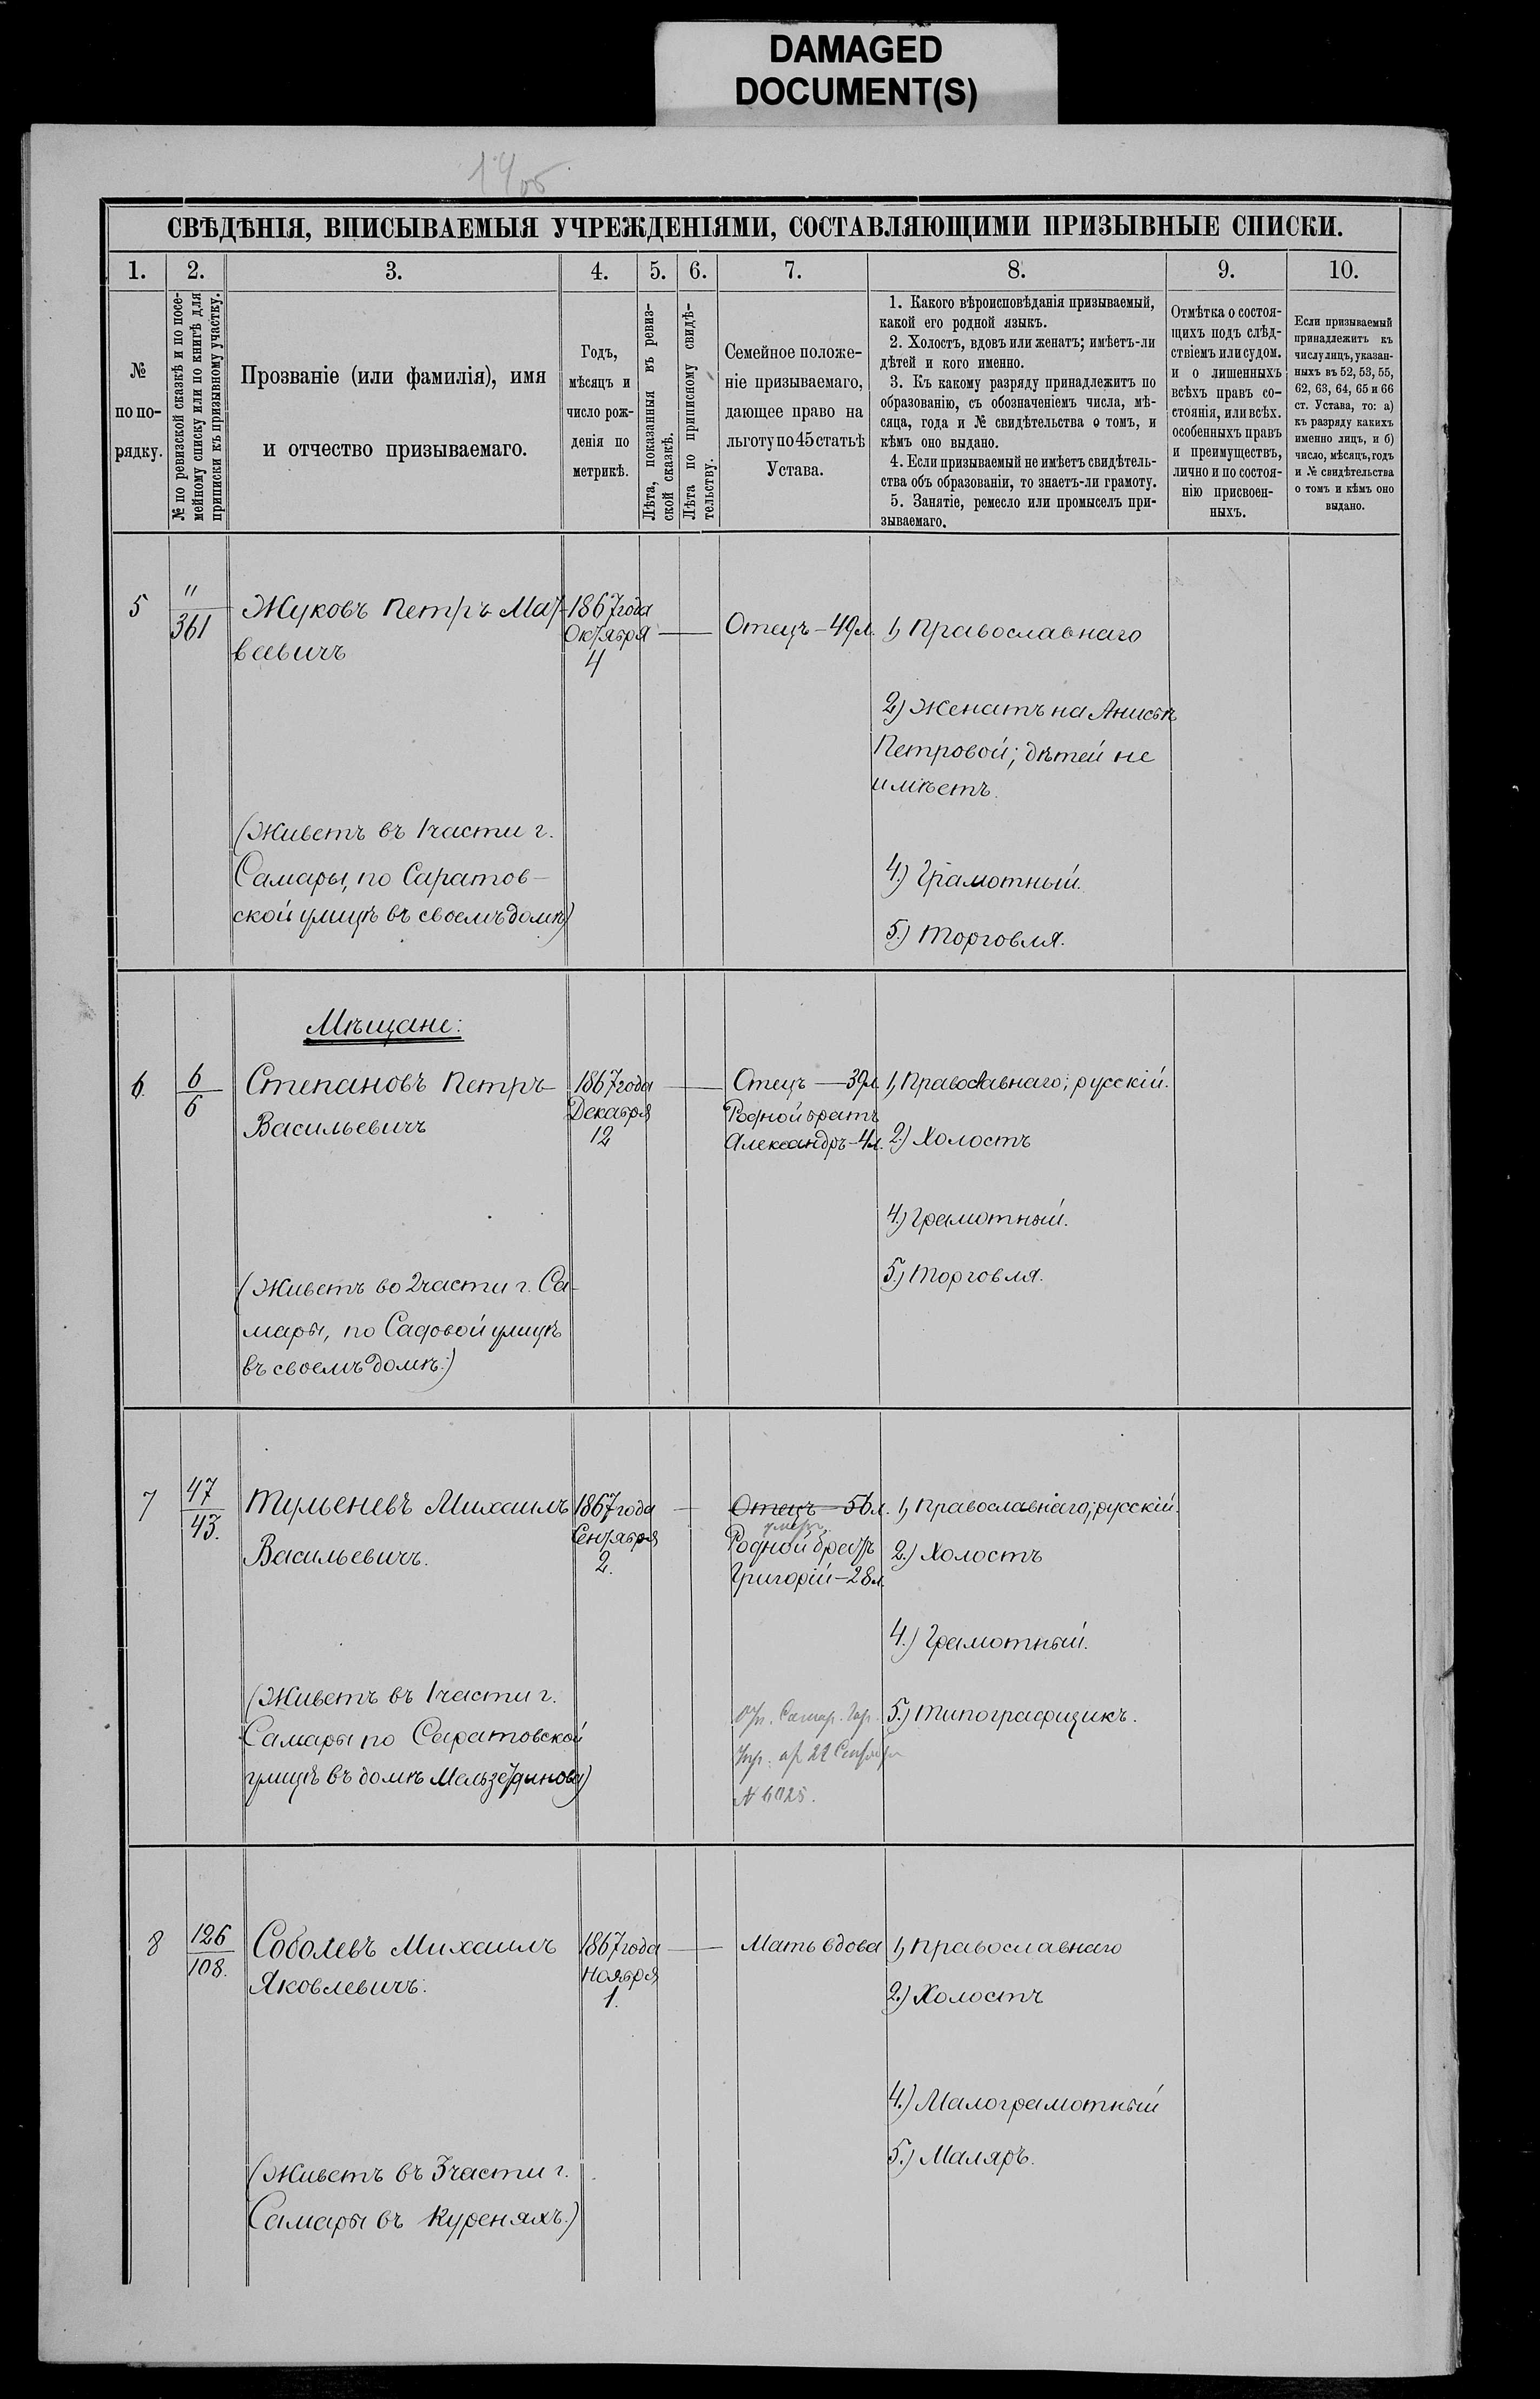 DAMAGED
DOCUMENT(S)
СВѢДѢНІЯ, ВПИСЫВАЕМЫЯ УЧРЕЖДЕНІЯМИ, СОСТАВЛЯЮЩИМИ ПРИЗЫВНЫЕ СПИСКИ.
1. 2. 3. 4. 5. 6. 7. 8. 9. 10.
№
по по-
рядку.
№ по ревизской сказкѣ и по посе-
мейному списку или по книгѣ для
приписки къ призывному участку.
Прозваніе (или фамилія), имя
и отчество призываемаго.
Годъ,
мѣсяцъ и
число рож-
денія по
метрикѣ.
Лѣта, показанныя въ ревиз-
ской сказкѣ.
Лѣта по приписному свидѣ-
тельству.
Семейное положе-
ніе призываемаго,
дающее право на
льготу по 45 статьѣ
Устава.
1. Какого вѣроисповѣданія призываемый,
какой его родной языкъ.
2. Холостъ, вдовъ или женатъ; имѣетъ-ли
дѣтей и кого именно.
3. Къ какому разряду принадлежитъ по
образованію, съ обозначеніемъ числа, мѣ-
сяца, года и № свидѣтельства о томъ, и
кѣмъ оно выдано.
4. Если призываемый не имѣетъ свидѣтель-
ства объ образованіи, то знаетъ-ли грамоту.
5. Занятіе, ремесло или промыселъ при-
зываемаго.
Отмѣтка о состоя-
щихъ подъ слѣд-
ствіемъ или судом.
и о лишенныхъ
всѣхъ правъ со-
стоянія, или всѣх.
особенныхъ правъ
и преимуществъ,
лично и по состоя-
нію присвоен-
ныхъ.
Если призываемый
принадлежитъ къ
числу лицъ, указан-
ныхъ въ 52, 53, 55,
62, 63, 64, 65 и 66
ст. Устава, то: а)
къ разряду какихъ
именно лицъ, и б)
число, мѣсяцъ, годъ
и № свидѣтельства
о томъ и кѣмъ оно
выдано.
5
"
361
Жуковъ Петръ Мат-
веевичъ
(Живетъ въ 1 части г.
Самары, по Саратов-
ской улицѣ въ своемъ домѣ)
1867 года
Октября
4
Отецъ – 49 л.
1, Православнаго
2) Женатъ на Анисьѣ
Петровой; дѣтей не
имѣетъ.
4.) Грамотный.
5.) Торговля.
Мѣщане:
6
6
6
Степановъ Петръ
Васильевичъ
(Живетъ во 2 части г. Са-
мары, по Садовой улицѣ
въ своемъ домѣ.)
1867 года
Декабря
12
Отецъ – 39 л.
Родной братъ
Александръ – 4 л.
1, Православнаго; русскій.
2.) Холостъ
4.) Грамотный.
5.) Торговля.
7
47
43.
Тюменевъ Михаилъ
Васильевичъ.
(Живетъ въ 1 части г.
Самары по Саратовской
улицѣ въ домѣ
1867 года
Сентября
2.
Отецъ – 56 л.
умеръ.
Родной братъ
Григорій – 28 л.
22
1, Православнаго; русскій.
2.) Холостъ
4.) Грамотный.
5.) Типографщикъ.
8
126
108.
Соболевъ Михаилъ
Яковлевичъ.
(Живетъ въ 3 части г.
Самары въ Куреняхъ.)
1867 года
Ноября
1.
Мать вдова
1, Православнаго
2.) Холостъ
4.) Малограмотный
5.) Маляръ.